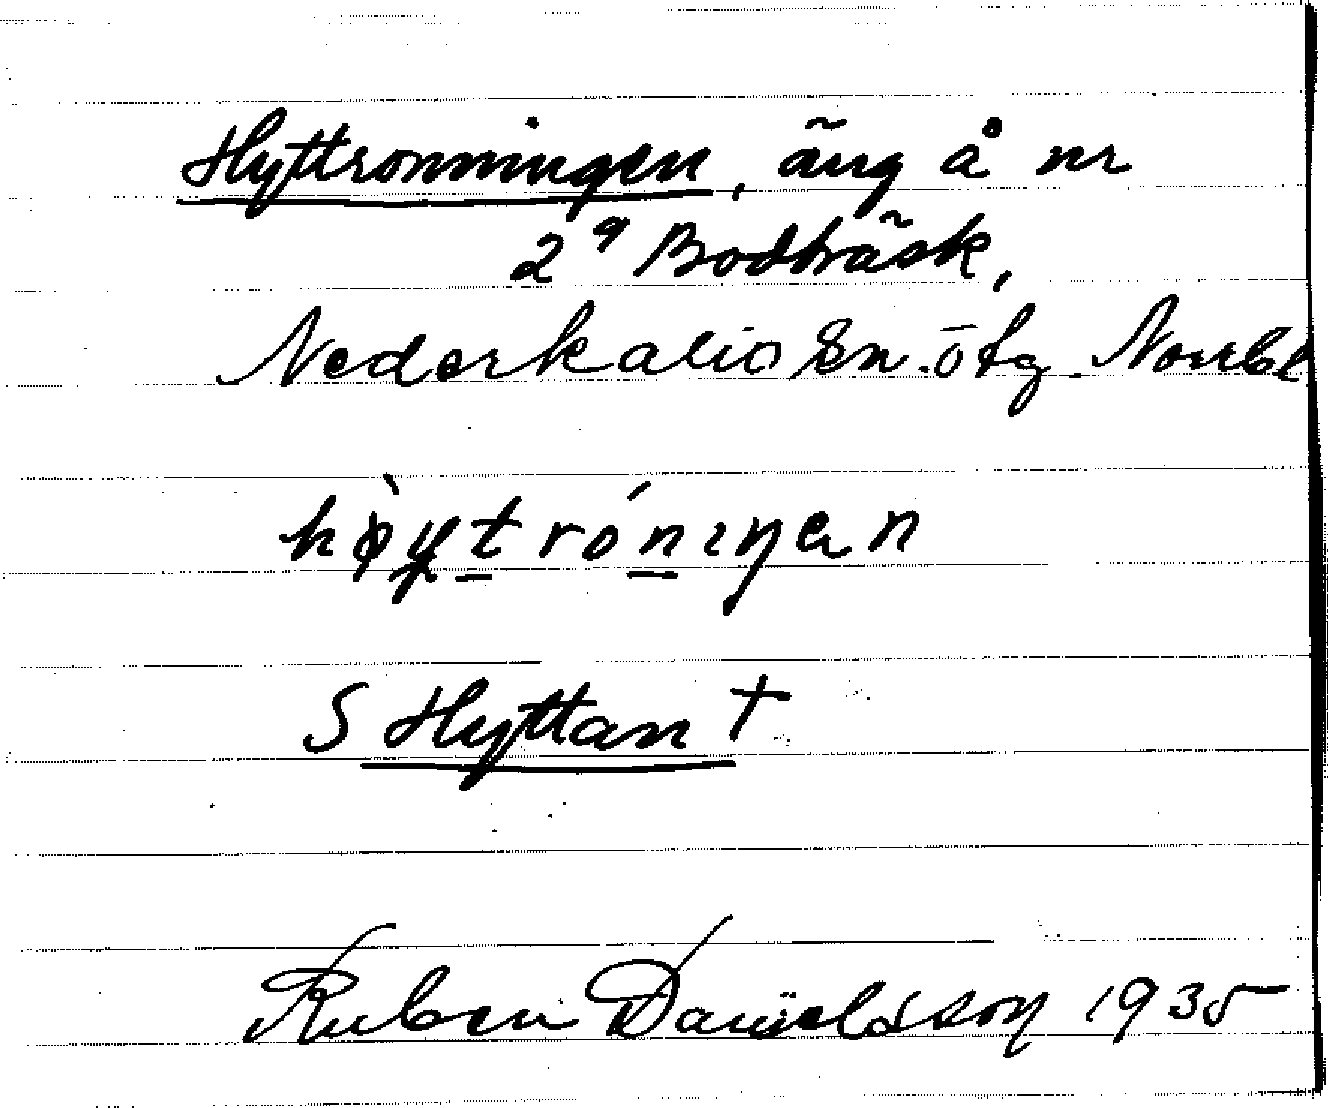 Hyttronningen, äng å nr
2⁹ Bodträsk,
Nederkalix sn. öfg. Norrb
hø̀yt rónıŋen
S Hyttan †
Ruben Danielsson 1935